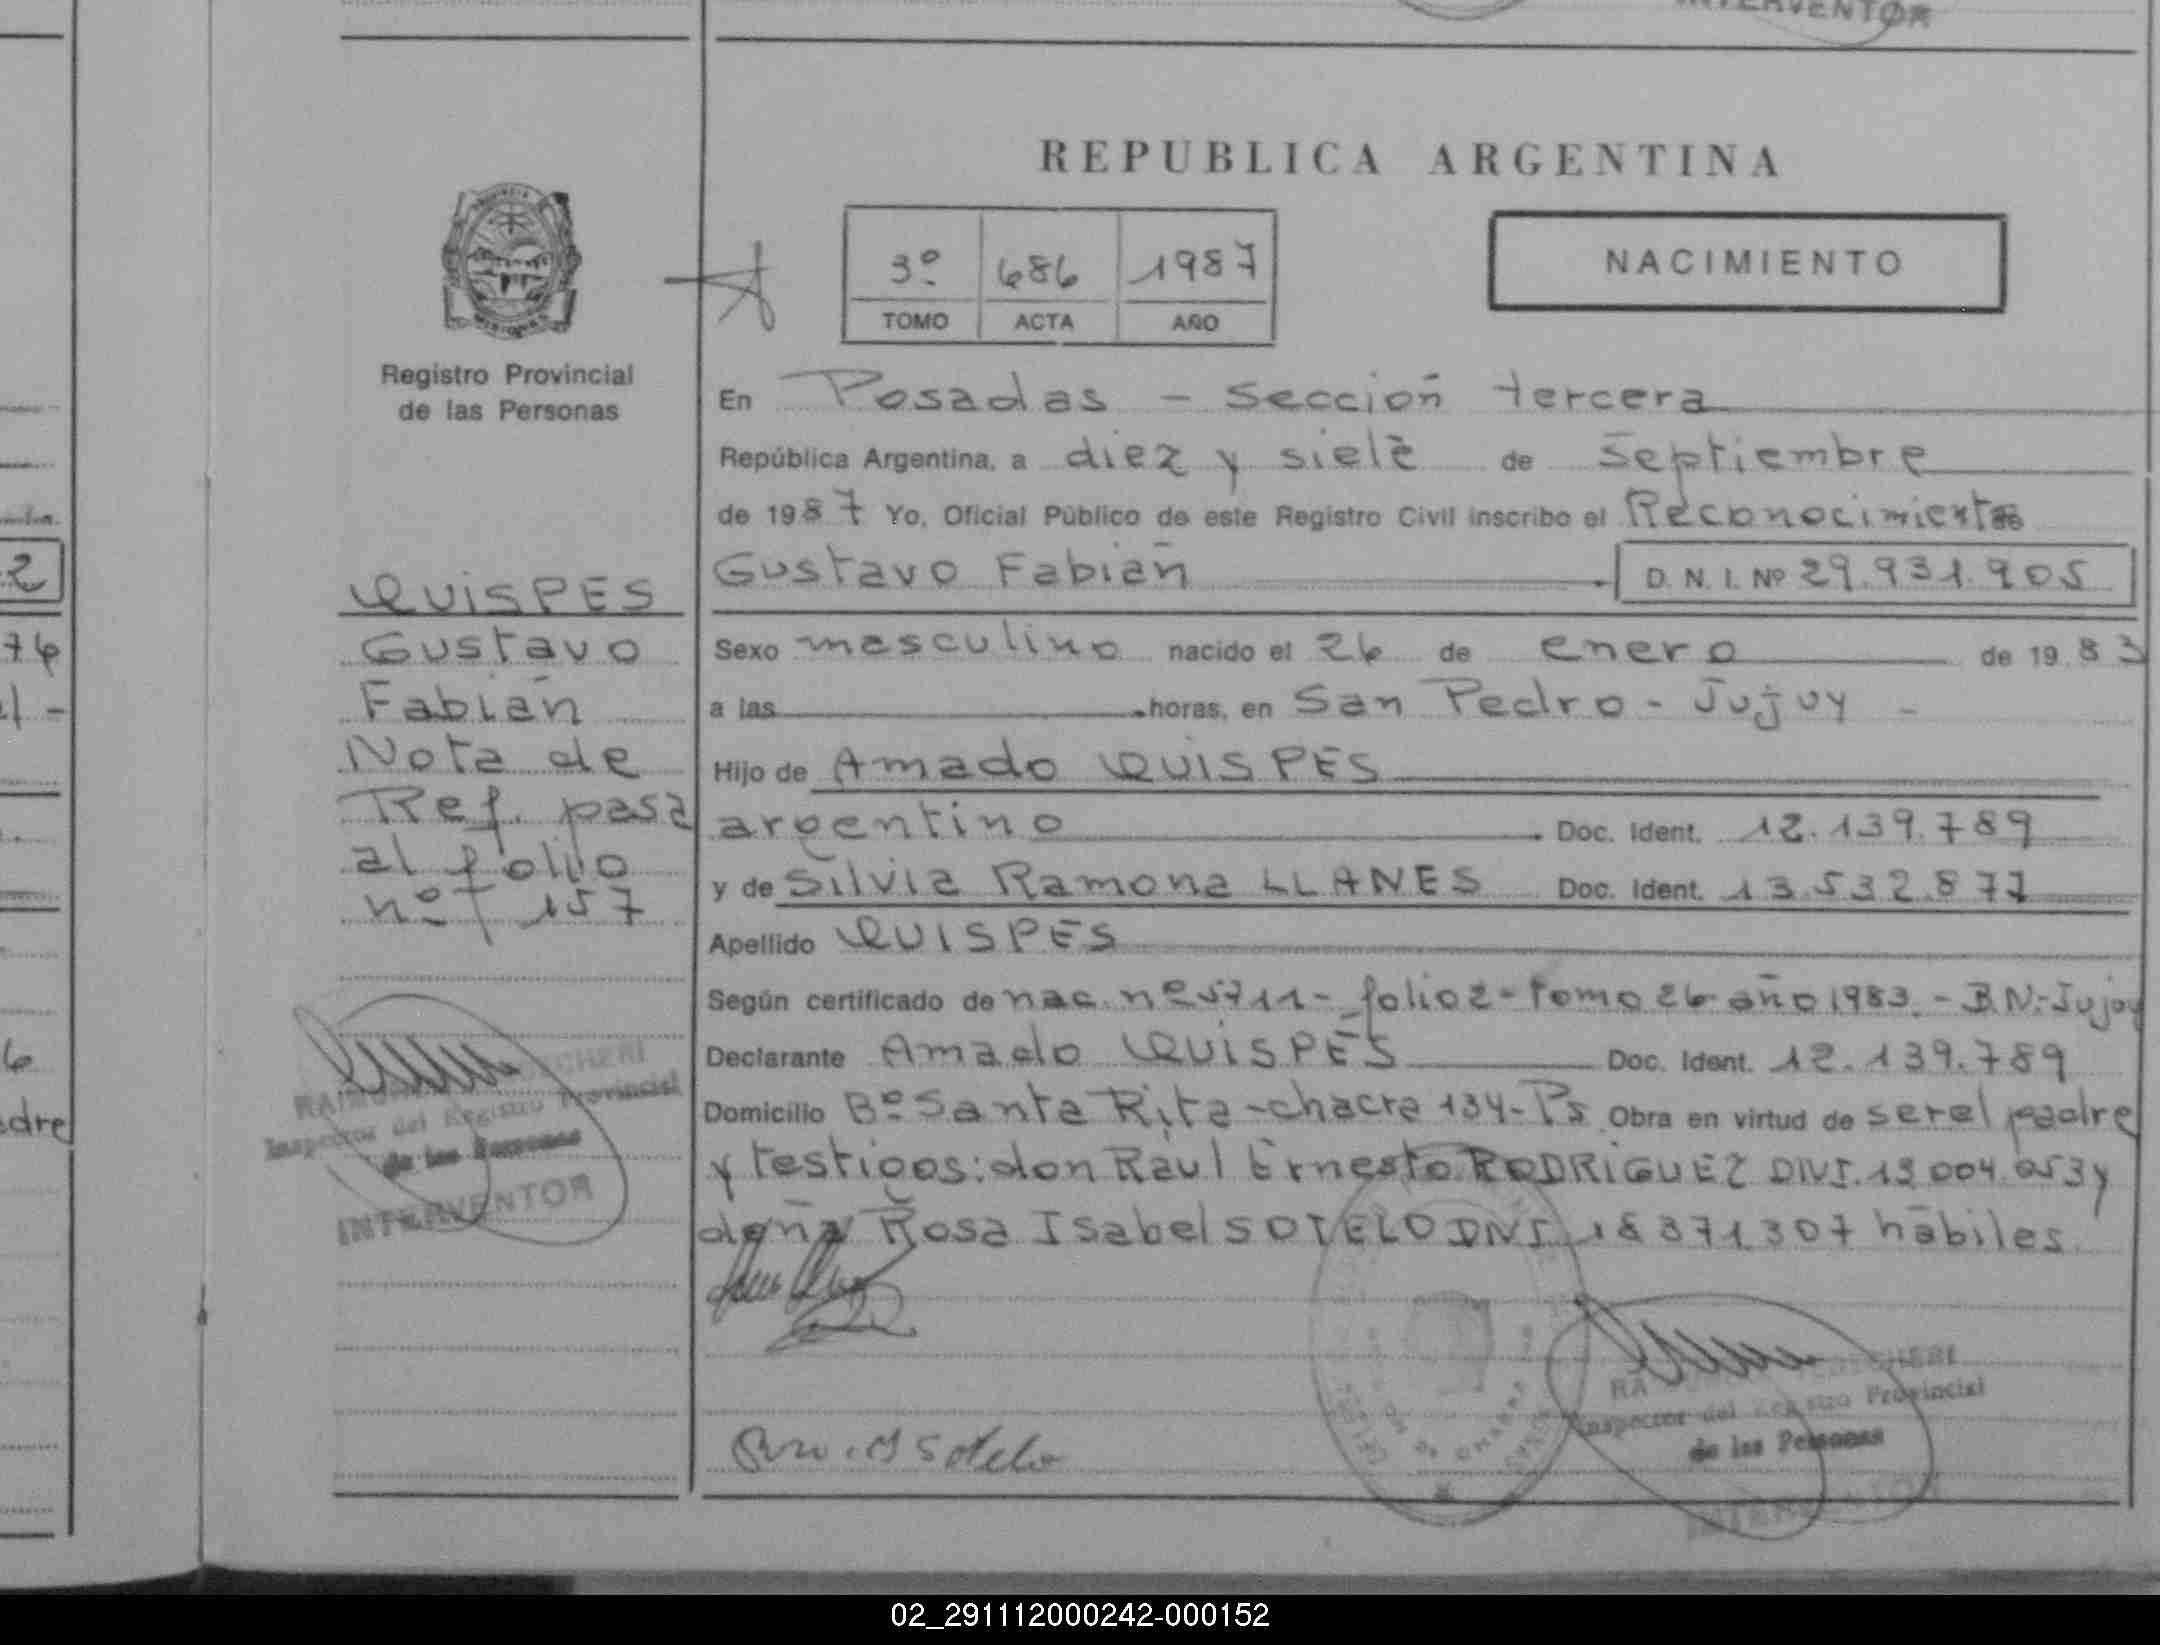 INTERVENTOR
REPUBLICA ARGENTINA
3º 686 1987
TOMO ACTA AÑO
NACIMIENTO
Registro Provincial
de las Personas
En Posadas - Sección tercera
República Argentina, a diez y siete de Septiembre
de 1987 Yo, Oficial Público de este Registro Civil inscribo el Reconocimiento
Gustavo Fabián D. N. I. Nº 29.931.905
Sexo masculino nacido el 26 de enero de 1983
a las horas, en San Pedro - Jujuy -
Hijo de Amado QUISPES
argentino Doc. Ident. 12.139.789
y de Silvia Ramona LLANES Doc. Ident. 13.532.877
Apellido QUISPES
Según certificado de nac. nº 5711 - folio 2 - Tomo 26 año 1983. - B.N.- Jujuy
Declarante Amado QUISPES Doc. Ident. 12.139.789
Domicilio Bº Santa Rita - chacra 134 - Ps Obra en virtud de ser el padre
y testigos: don Raul Ernesto RODRIGUEZ DNI. 13.004.053 y
doña Rosa Isabel SOTELO DNI 18 371.307 hábiles.
QUISPES
Gustavo
Fabián
Nota de
Ref. pasa
al folio
nº 157
Inspector del Registro Provincial
de las Personas
INTERVENTOR
Sotelo
Inspector del Registro Provincial
de las Personas
INTERVENTOR
2
76
6
adre
02_291112000242-000152